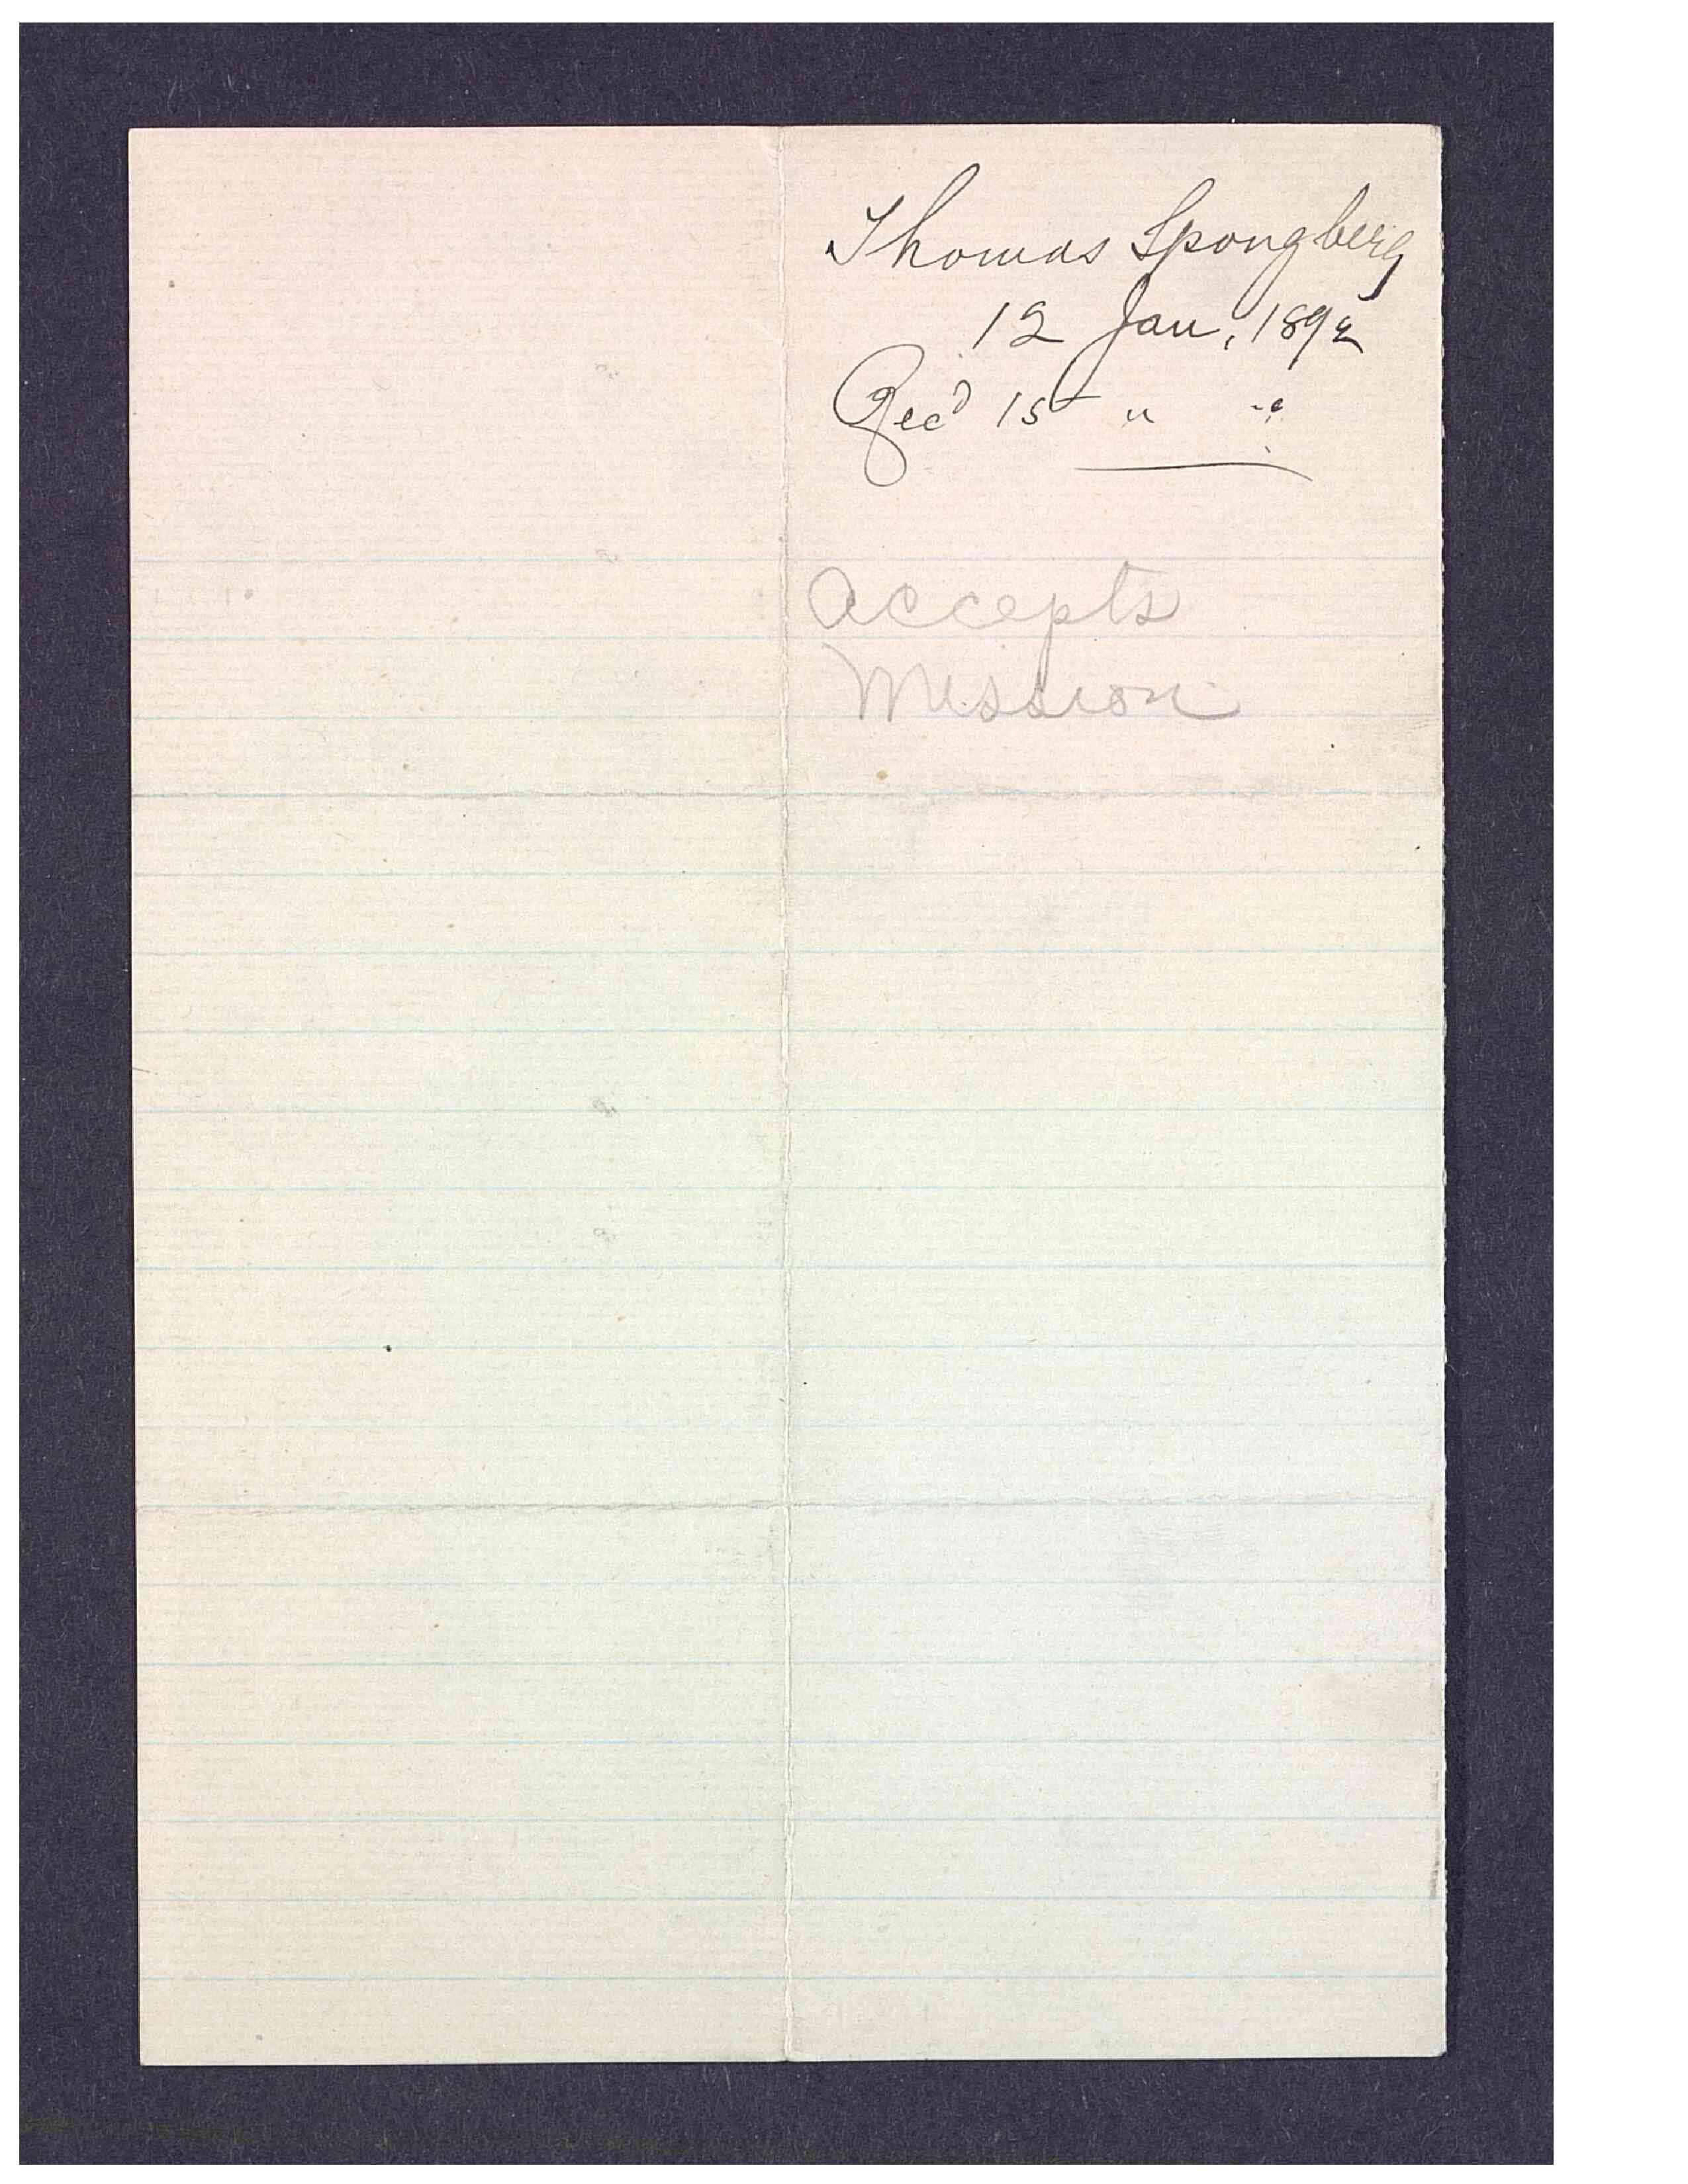 Thomas Spongberg
12 Jan, 1892
Rec'd 15 " "
accepts
Mission